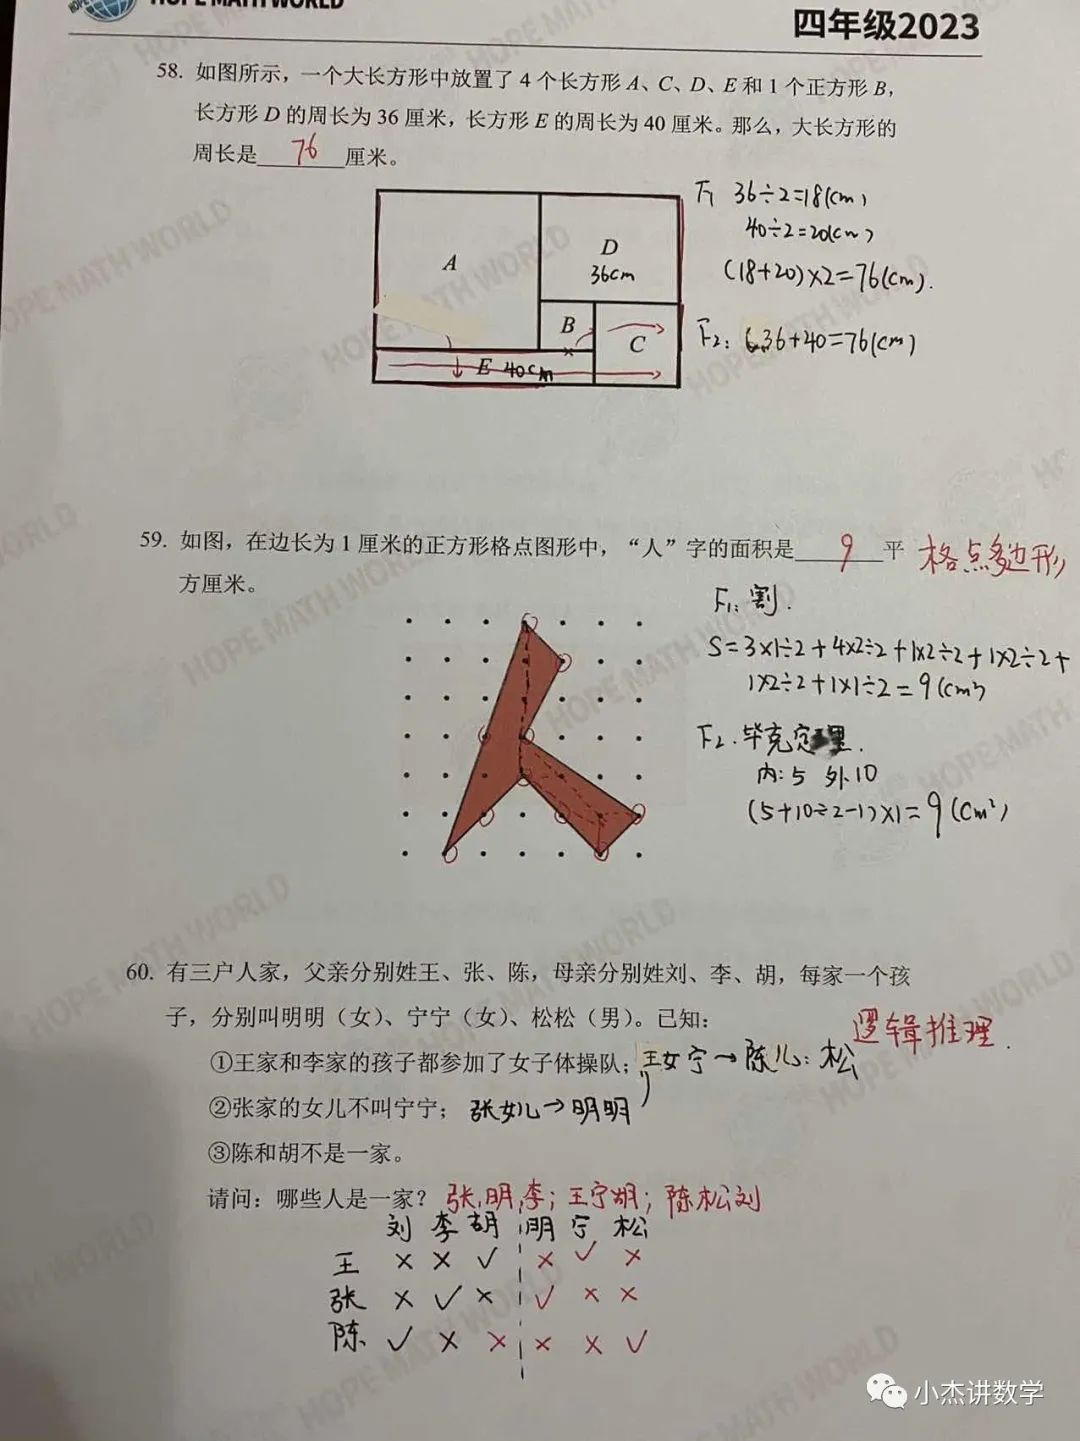 HOPE MATH WORLD
四年级2023
58. 如图所示，一个大长方形中放置了 4 个长方形 A、C、D、E 和 1 个正方形 B，
长方形 D 的周长为 36 厘米，长方形 E 的周长为 40 厘米。那么，大长方形的
周长是 76 厘米。
F1 36÷2=18(cm)
40÷2=20(cm)
(18+20)×2=76(cm).
A
D
36cm
B
C
E 40cm
F2: 36+40=76(cm)
59. 如图，在边长为 1 厘米的正方形格点图形中，“人”字的面积是 9 平
方厘米。
格点多边形
F1: 割.
S=3×1÷2+4×2÷2+1×2÷2+1×2÷2+
1×2÷2+1×1÷2=9(cm²)
F2. 毕克定理.
内:5 外10
(5+10÷2-1)×1=9(cm²)
60. 有三户人家，父亲分别姓王、张、陈，母亲分别姓刘、李、胡，每家一个孩
子，分别叫明明（女）、宁宁（女）、松松（男）。已知：
逻辑推理.
①王家和李家的孩子都参加了女子体操队；王女宁→陈儿：松
②张家的女儿不叫宁宁；张女儿→明明
③陈和胡不是一家。
请问：哪些人是一家？张,明,李；王宁胡；陈松刘
刘 李 胡 明 宁 松
王 × × ✓ × ✓ ×
张 × ✓ × ✓ × ×
陈 ✓ × × × × ✓
小杰讲数学